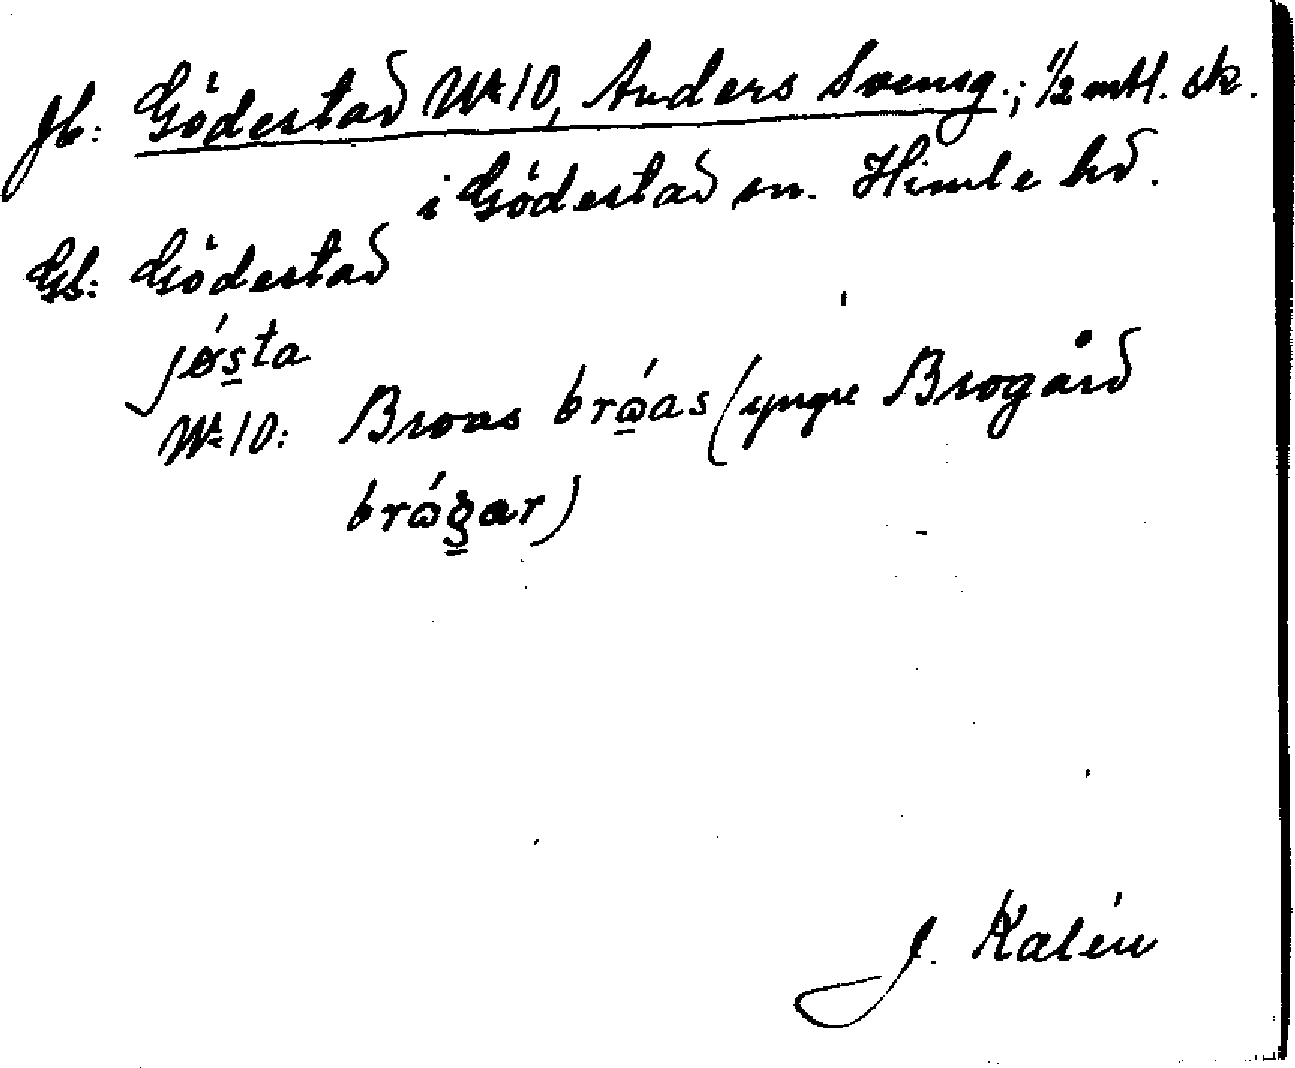 Jb: Gödestad Nr 10, Anders Svensg.; 1/2 mtl. sk.
i Gödestad sn. Himle hd.
Gb: Gödestad
jøsta
Nr 10: Broas bróas (yngre Brogård
brógar)
J. Kalén